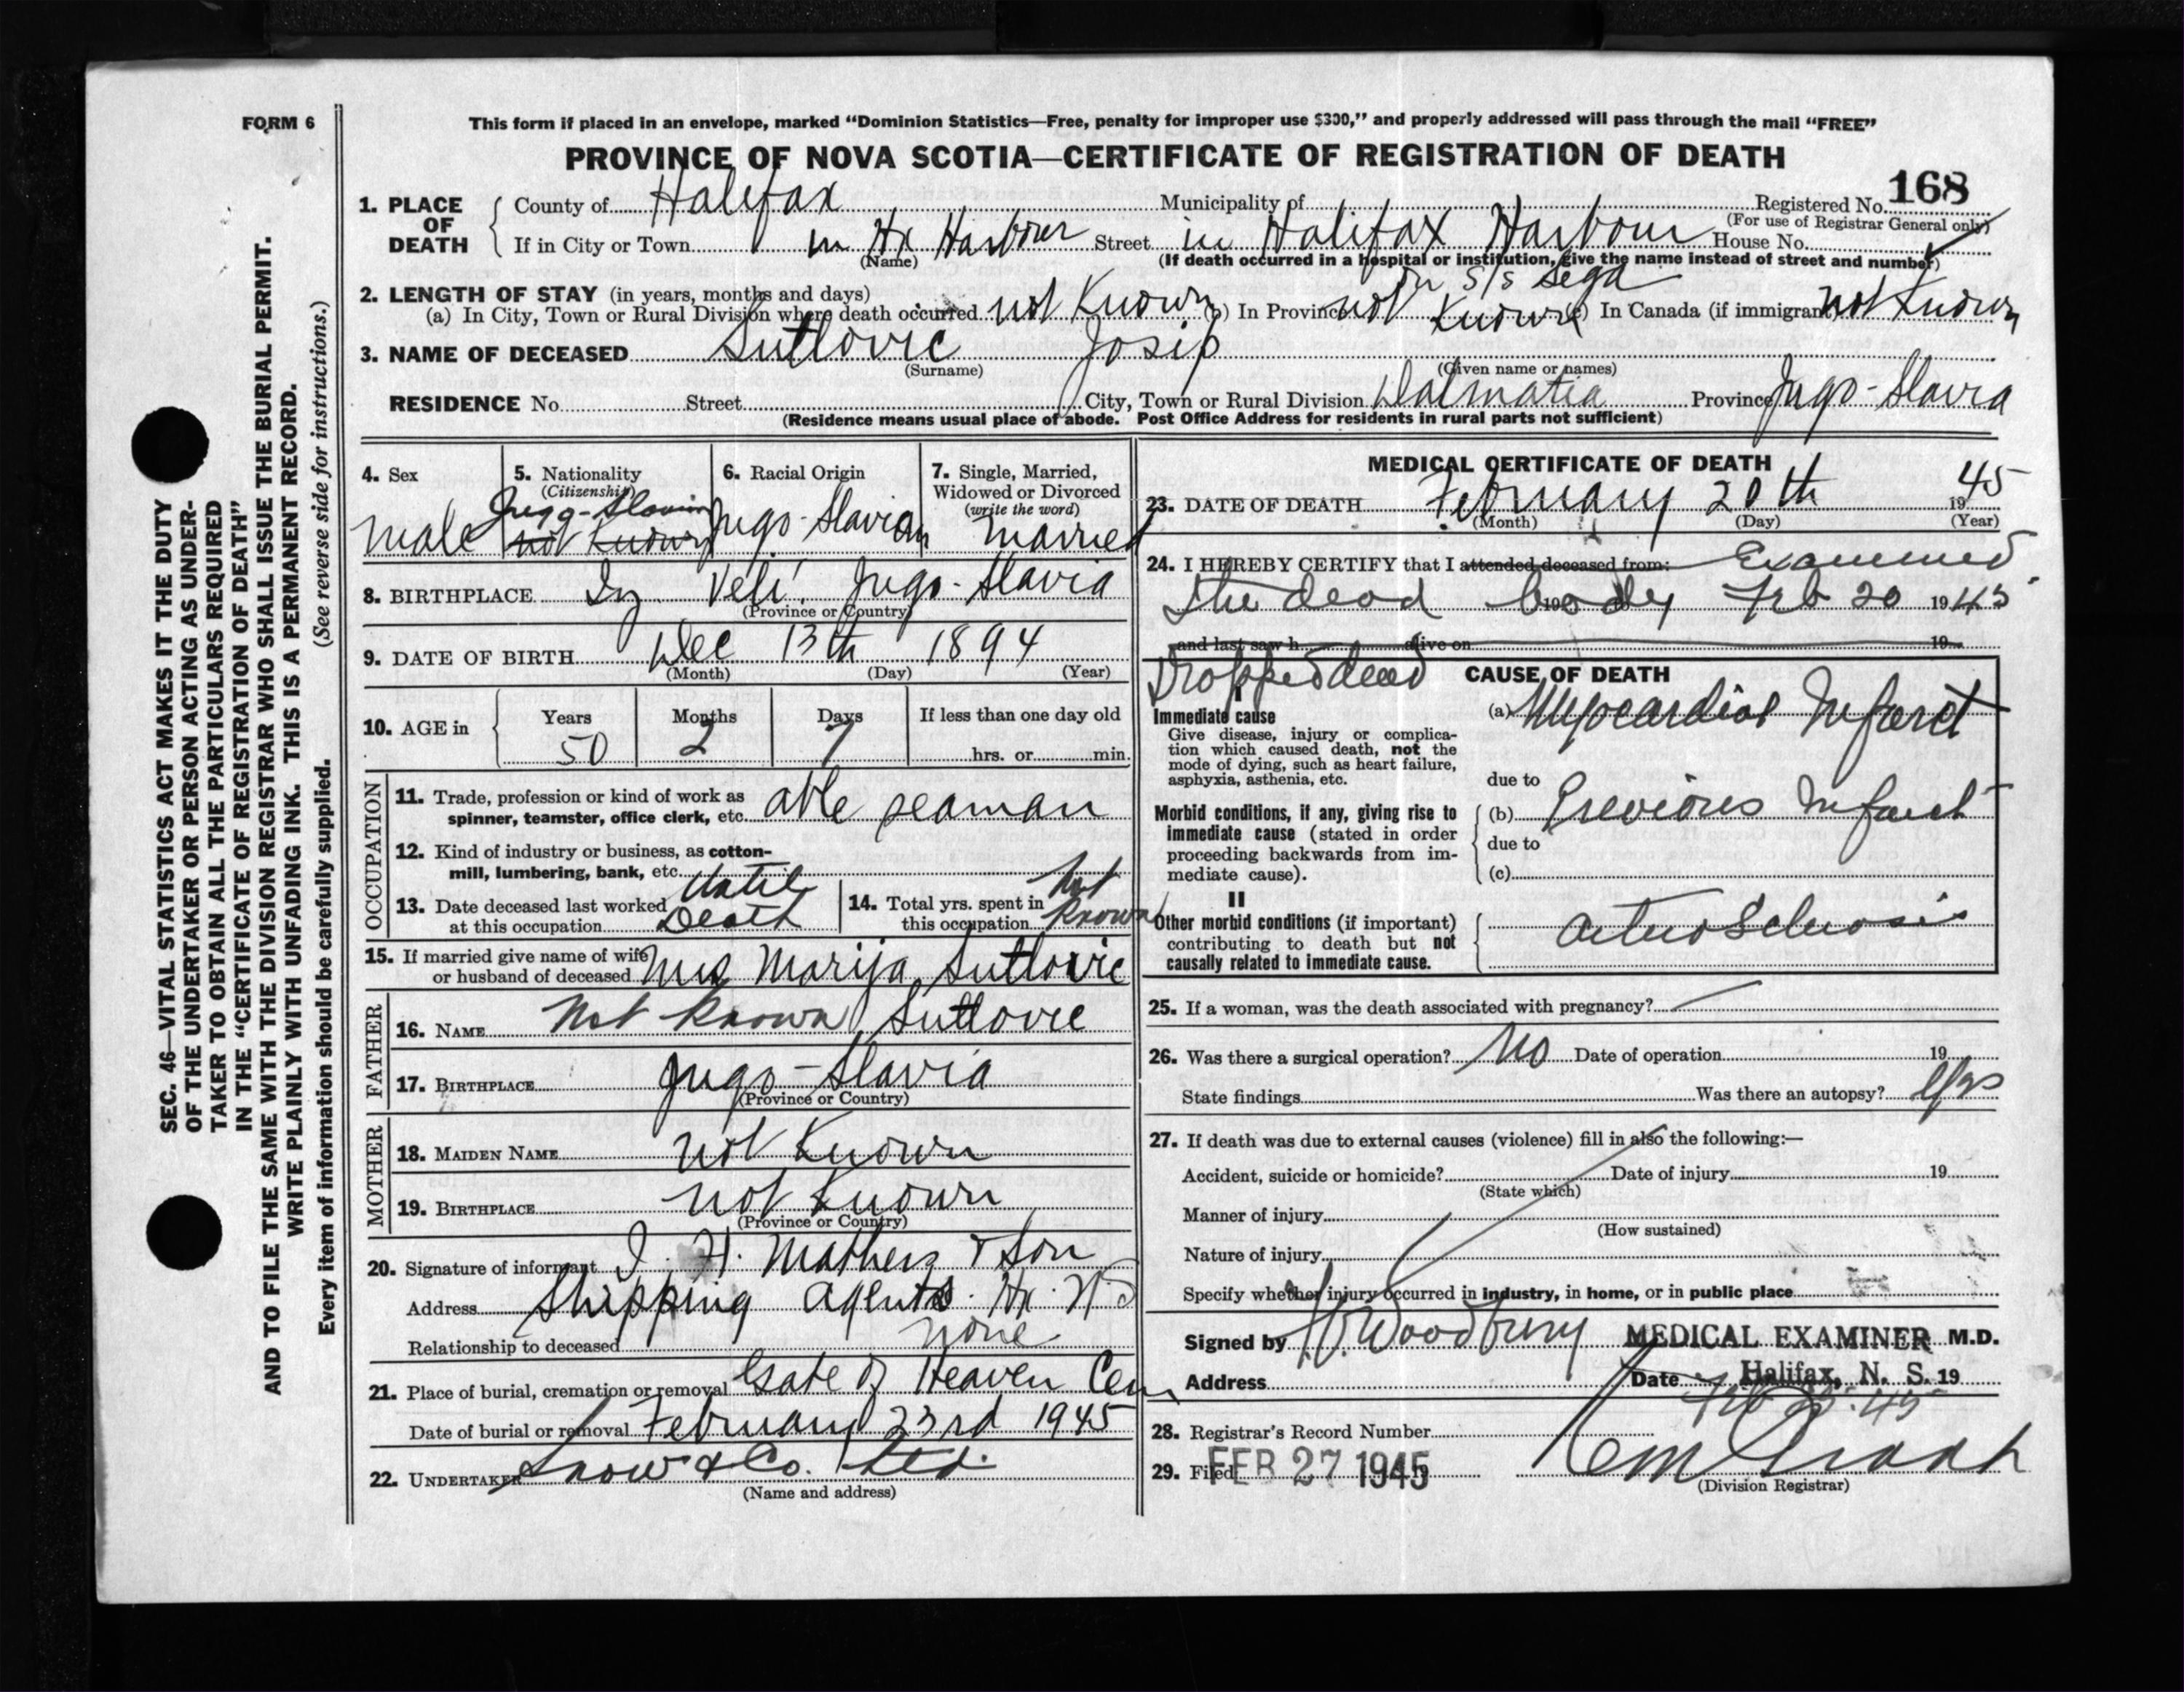 FORM 6
This form if placed in an envelope, marked "Dominion Statistics—Free, penalty for improper use $300," and properly addressed will pass through the mail "FREE"
PROVINCE OF NOVA SCOTIA—CERTIFICATE OF REGISTRATION OF DEATH
1. PLACE OF DEATH
County of Halifax Municipality of Registered No. 168
(For use of Registrar General only)
If in City or Town in Hx Harbour Street in Halifax Harbour House No.
(Name) (If death occurred in a hospital or institution, give the name instead of street and number)
on S/S Sega
2. LENGTH OF STAY (in years, months and days)
(a) In City, Town or Rural Division where death occurred not Known (b) In Province not Known (c) In Canada (if immigrant) not Known
3. NAME OF DECEASED Sutlovic Josip
(Surname) (Given name or names)
RESIDENCE No. Street City, Town or Rural Division Dalmatia Province Jugo-Slavia
(Residence means usual place of abode. Post Office Address for residents in rural parts not sufficient)
4. Sex
male
5. Nationality
(Citizenship)
Jugo-Slavian
not Known
6. Racial Origin
Jugo-Slavian
7. Single, Married,
Widowed or Divorced
(write the word)
married
8. BIRTHPLACE Iz Veli Jugo-Slavia
(Province or Country)
9. DATE OF BIRTH Dec 13th 1894
(Month) (Day) (Year)
10. AGE in
Years Months Days If less than one day old
50 2 7 hrs. or min.
OCCUPATION
11. Trade, profession or kind of work as
spinner, teamster, office clerk, etc. able seaman
12. Kind of industry or business, as cotton-
mill, lumbering, bank, etc.
13. Date deceased last worked
at this occupation
Until
Death
14. Total yrs. spent in
this occupation
Not
Known
15. If married give name of wife
or husband of deceased Mrs Marija Sutlovic
FATHER
16. NAME Not Known Sutlovic
17. BIRTHPLACE Jugo-Slavia
(Province or Country)
MOTHER
18. MAIDEN NAME not Known
19. BIRTHPLACE not Known
(Province or Country)
20. Signature of informant I. H. Mathers & Son
Address Shipping Agents. Hx. N.S
Relationship to deceased none
21. Place of burial, cremation or removal Gate of Heaven Cem
Date of burial or removal February 23rd 1945
22. UNDERTAKER Snow & Co. Ltd.
(Name and address)
MEDICAL CERTIFICATE OF DEATH
23. DATE OF DEATH February 20th 1945
(Month) (Day) (Year)
24. I HEREBY CERTIFY that I attended deceased from: Examined
the dead body Feb 20 1945
and last saw h alive on 19
Dropped dead
CAUSE OF DEATH
I
Immediate cause
Give disease, injury or complica-
tion which caused death, not the
mode of dying, such as heart failure,
asphyxia, asthenia, etc.
(a) Myocardial Infarct
due to
Morbid conditions, if any, giving rise to
immediate cause (stated in order
proceeding backwards from im-
mediate cause).
(b) Previous Infarct
due to
(c)
II
Other morbid conditions (if important)
contributing to death but not
causally related to immediate cause.
arterioSclerosis
25. If a woman, was the death associated with pregnancy?
26. Was there a surgical operation? No Date of operation 19
State findings Was there an autopsy? Yes
27. If death was due to external causes (violence) fill in also the following:—
Accident, suicide or homicide? Date of injury 19
(State which)
Manner of injury
(How sustained)
Nature of injury
Specify whether injury occurred in industry, in home, or in public place
Signed by Woodbury MEDICAL EXAMINER M.D.
Address Date Halifax, N. S. 19
28. Registrar's Record Number
29. Filed FEB 27 1945
(Division Registrar)
SEC. 46—VITAL STATISTICS ACT MAKES IT THE DUTY
OF THE UNDERTAKER OR PERSON ACTING AS UNDER-
TAKER TO OBTAIN ALL THE PARTICULARS REQUIRED
IN THE "CERTIFICATE OF REGISTRATION OF DEATH"
AND TO FILE THE SAME WITH THE DIVISION REGISTRAR WHO SHALL ISSUE THE BURIAL PERMIT.
WRITE PLAINLY WITH UNFADING INK. THIS IS A PERMANENT RECORD.
Every item of information should be carefully supplied. (See reverse side for instructions.)